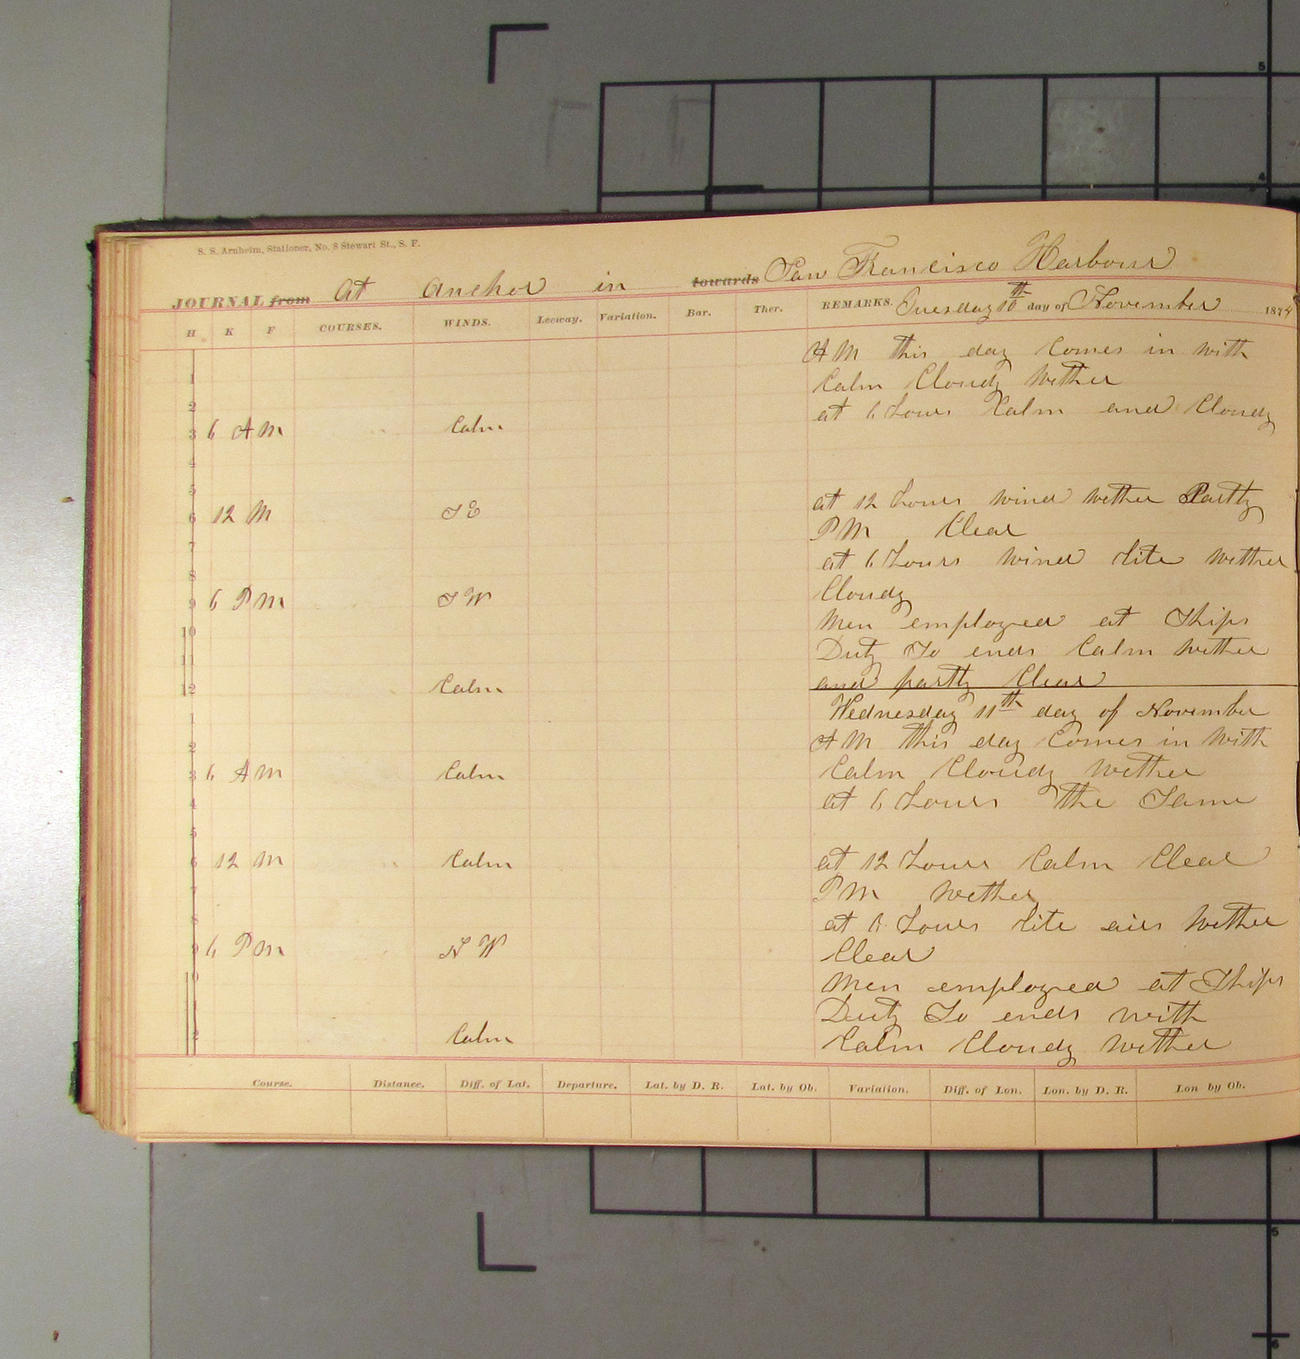 S. S. Arnheim, Stationer, No. 8 Stewart St., S. F.
JOURNAL from At Anchor in towards San Francisco Harbour
H K F COURSES. WINDS. Leeway. Variation. Bar. Ther. REMARKS. Tuesday 10th day of November 1874
AM this day Comes in with
1
Calm Cloudy wether
2
at 6 hours Calm and Cloudy
3 6 AM Calm
4
5
at 12 hours wind wether Partly
6 12 M S E
PM Clear
7
at 6 hours wind lite wether
8
Cloudy
9 6 PM S W
Men employed at Ships
10
Duty So ends Calm wether
11
and partly Clear
12 Calm
Wednesday 11th day of November
1
AM this day Comes in with
2
Calm Cloudy wether
3 6 AM Calm
at 6 hours the Same
4
5
at 12 hours Calm Clear
6 12 M Calm
PM wether
7
at 6 hours lite airs wether
8
Clear
9 6 PM N W
Men employed at Ships
10
Duty So ends with
11
Calm Cloudy wether
12 Calm
Course. Distance. Diff. of Lat. Departure. Lat. by D. R. Lat. by Ob. Variation. Diff. of Lon. Lon. by D. R. Lon by Ob.
5
4
5
6